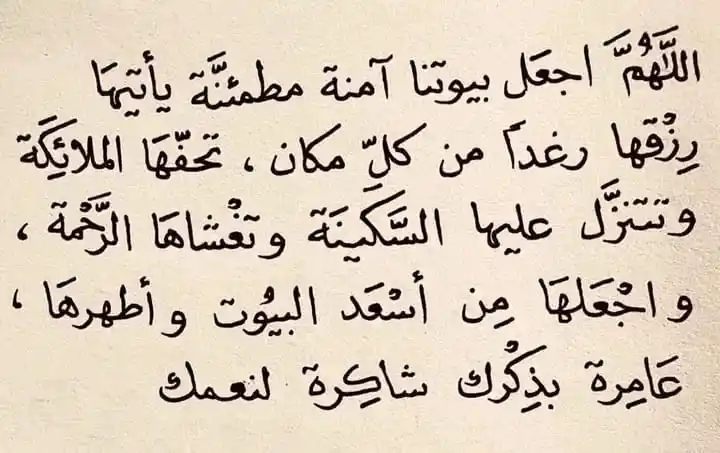 اللَّهُمَّ اجعَل بيوتنا آمنة مطمئنَّة يأتيهَا
رِزْقها رغداً من كلِّ مكان ، تحفّهَا الملائِكَة
وتتنزَّل عليها السَّكينَة وتغْشاهَا الرَّحْمة ،
واجْعَلهَا مِن أسْعَد البيُوت وأطهرهَا ،
عَامِرة بذِكْرك شاكِرة لنعمك